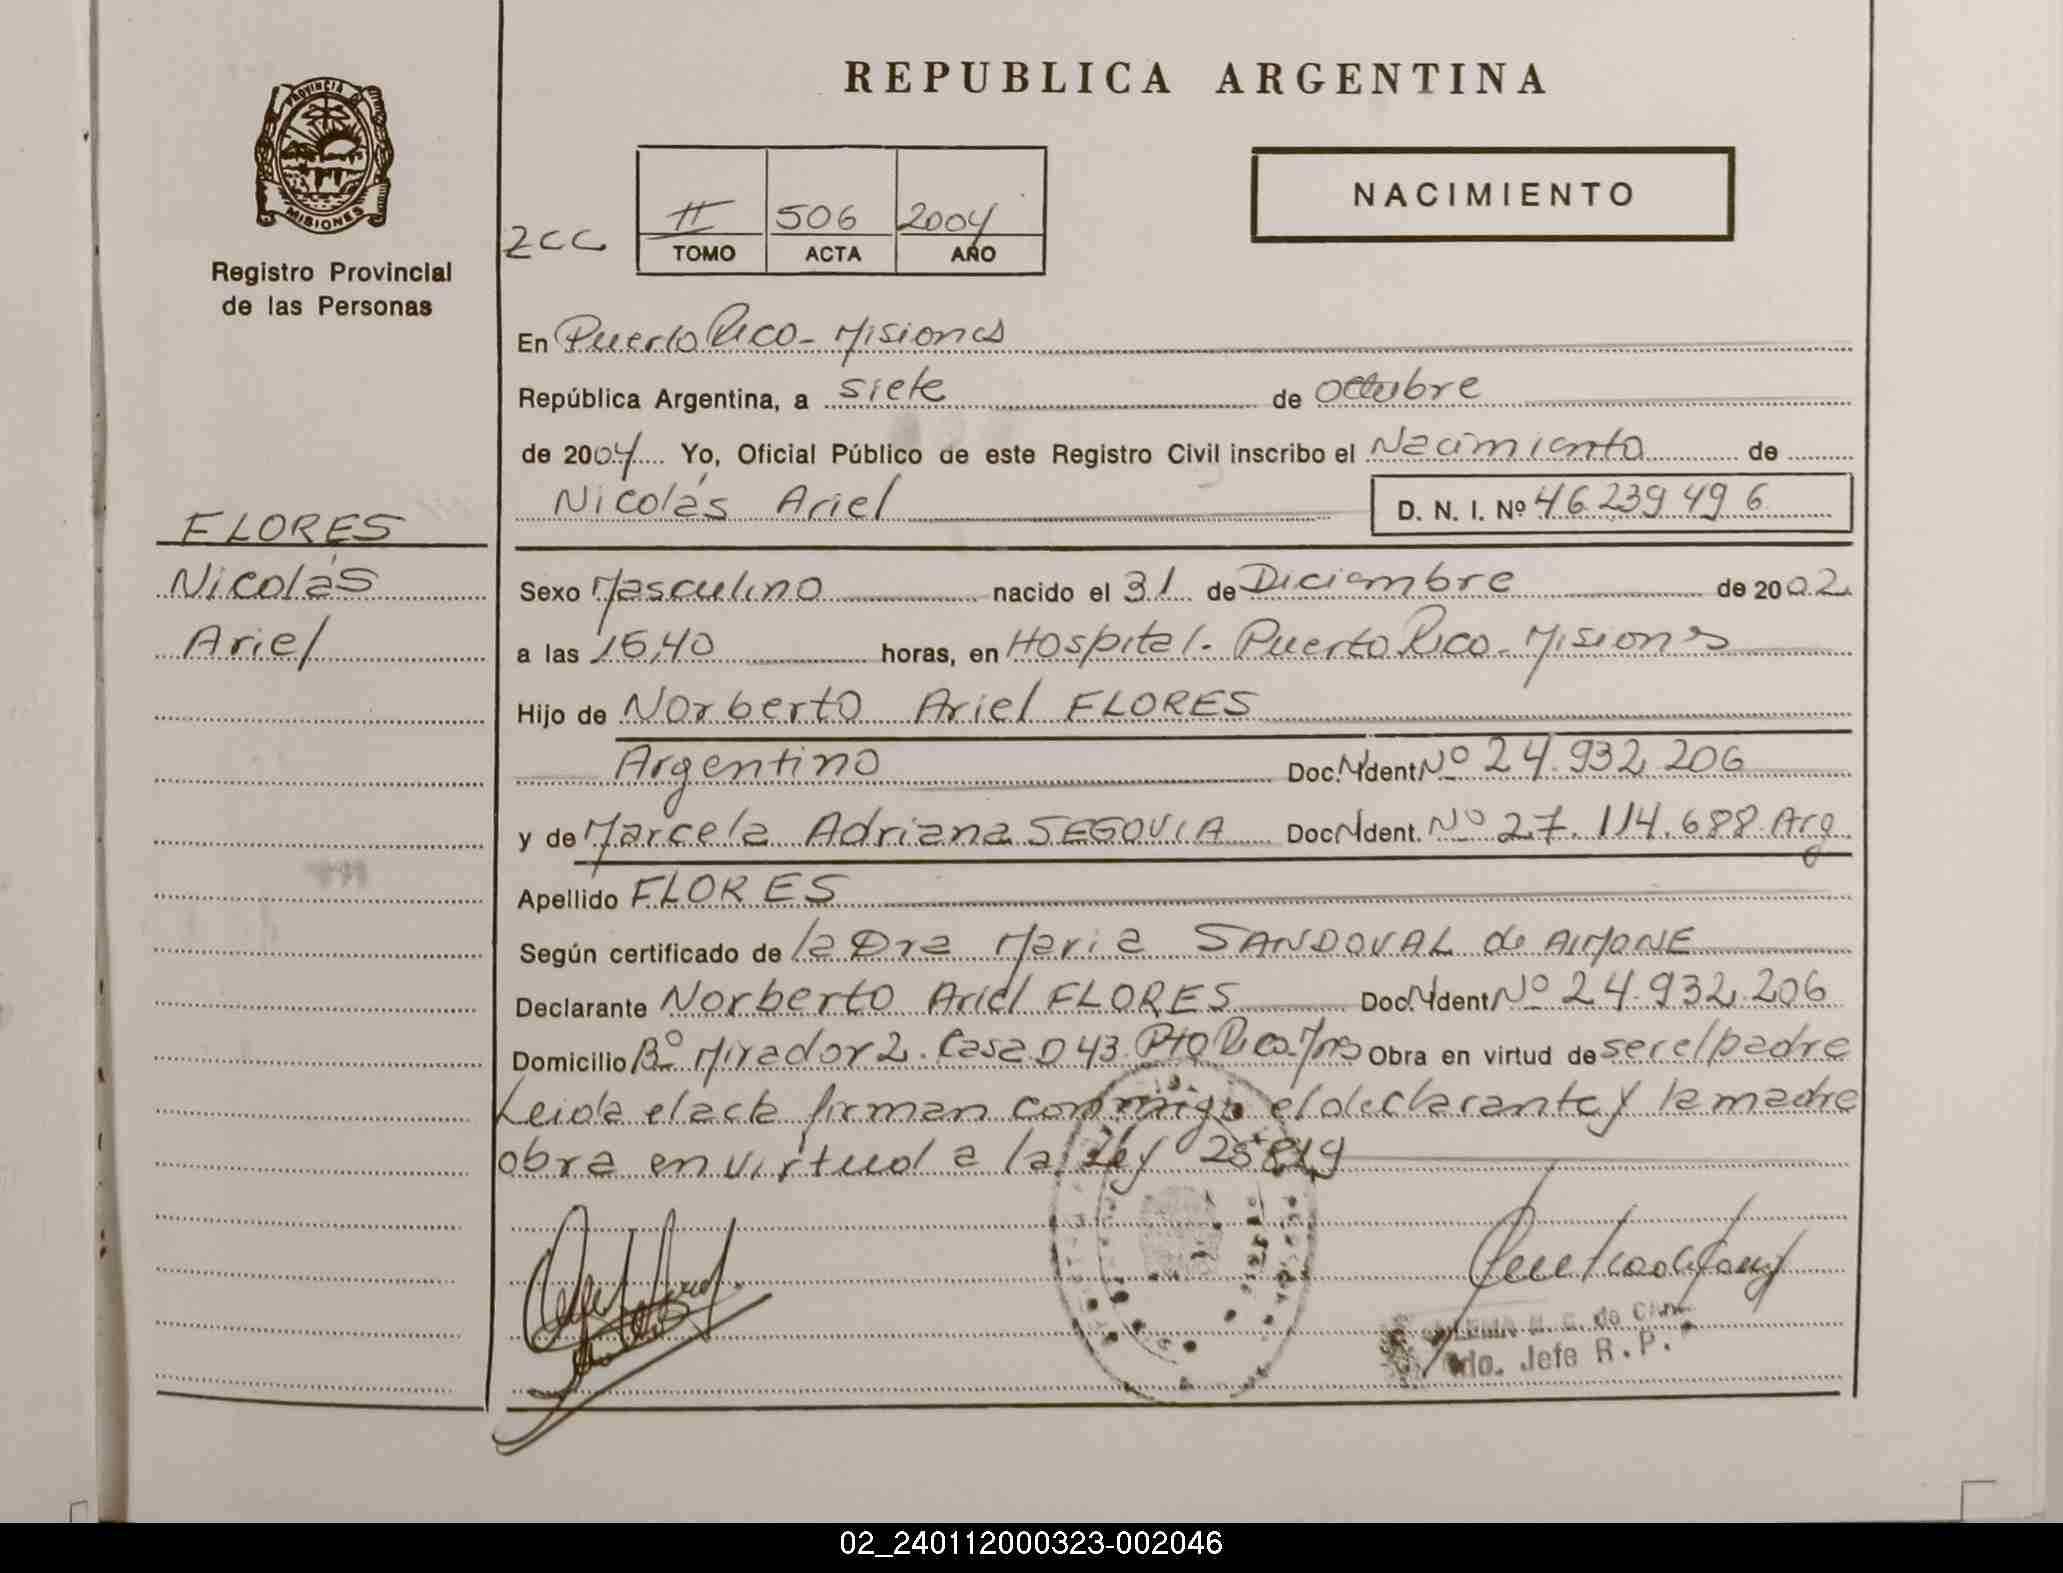 REPUBLICA ARGENTINA
PROVINCIA DE
MISIONES
Registro Provincial
de las Personas
2CC
II 506 2004
TOMO ACTA AÑO
NACIMIENTO
En Puerto Rico - Misiones
República Argentina, a siete de octubre
de 2004 Yo, Oficial Público de este Registro Civil inscribo el Nacimiento de
Nicolás Ariel D. N. I. Nº 46.239.496
FLORES
Nicolás
Ariel
Sexo Masculino nacido el 31 de Diciembre de 2002
a las 15,40 horas, en Hospital - Puerto Rico - Misiones
Hijo de Norberto Ariel FLORES
Argentino Doc. N Ident Nº 24.932.206
y de Marcela Adriana SEGOVIA Doc N Ident. Nº 27.114.688 Arg
Apellido FLORES
Según certificado de la Dra Maria SANDOVAL de AIMONE
Declarante Norberto Ariel FLORES Doc. N Ident Nº 24.932.206
Domicilio Bº Mirador 2. Casa D 43. Pto Rico. Mns Obra en virtud de ser el padre
Leida el acta firman conmigo el declarante y la madre
obra en virtud a la Ley 25819
de
Jefe R. P.
02_240112000323-002046